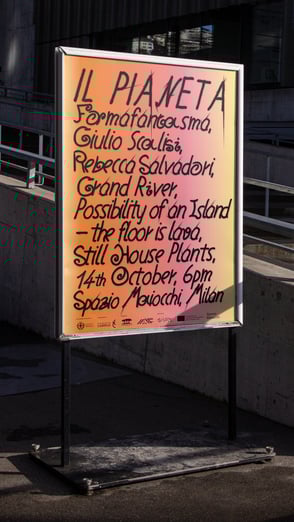 IL PIANETA
Formafantasma,
Giulio Scalisi,
Rebecca Salvadori,
Grand River,
Possibility of an Island
– the floor is lava,
Still House Plants,
14th October, 6pm
Spazio Maiocchi, Milan